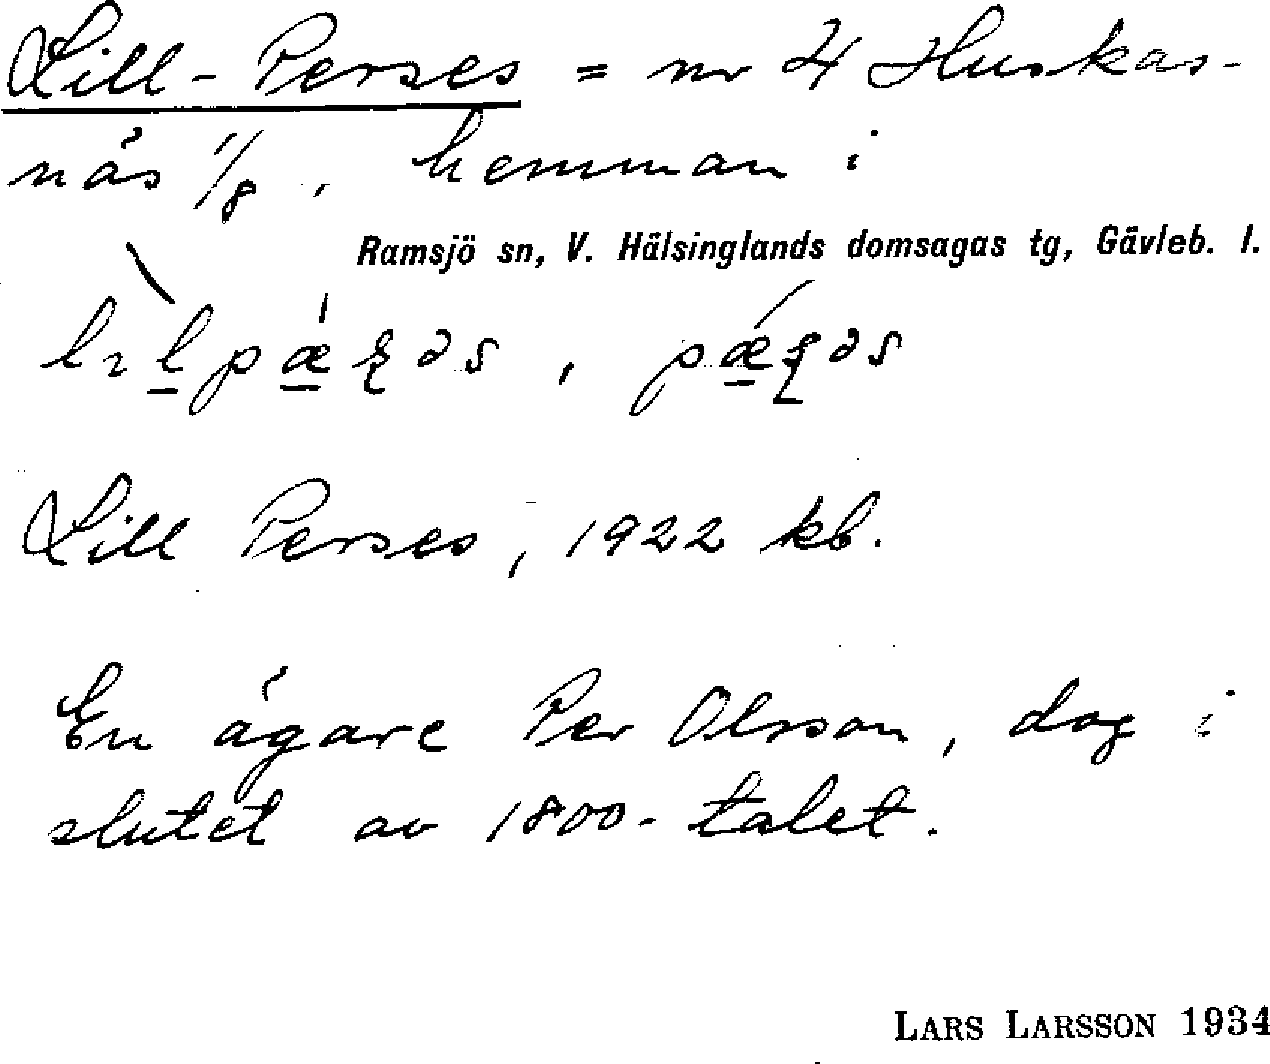 Lill-Perses = nr 4 Huskas-
näs 1/8, hemman i
Ramsjö sn, V. Hälsinglands domsagas tg, Gävleb. l.
Lill Perses, 1922 kb.
En ägare Per Olsson, dog i
slutet av 1800-talet.
LARS LARSSON 1934